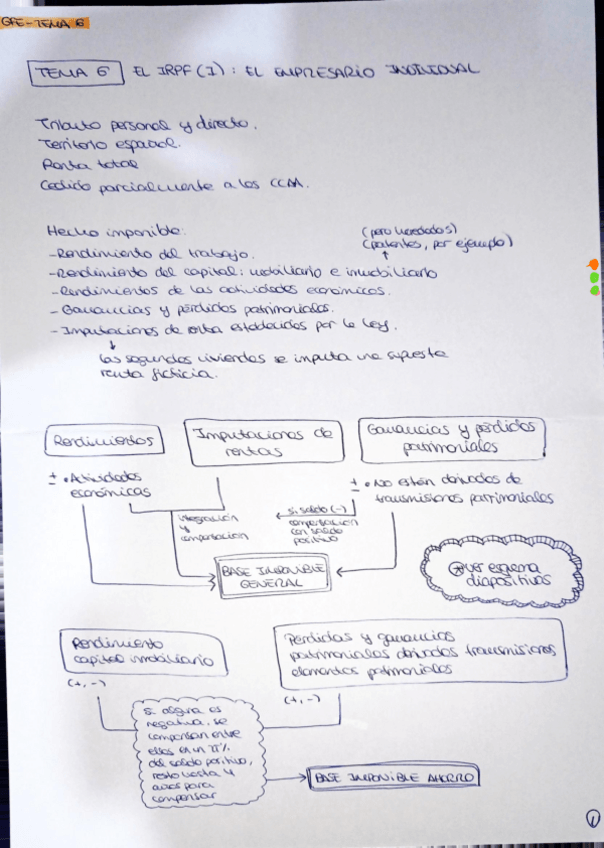 GFE-TEMA 6
TEMA 6 EL IRPF (I): EL EMPRESARIO INDIVIDUAL
Tributo personal y directo.
Territorio español.
Renta total
Cedido parcialmente a las CCAA.
Hecho imponible:
(pero heredados)
(patentes, por ejemplo)
-Rendimiento del trabajo.
-Rendimiento del capital: mobiliario e inmobiliario
-Rendimientos de las actividades económicas.
-Ganancias y pérdidas patrimoniales.
-Imputaciones de renta establecidas por la ley.
las segundas viviendas se imputa una supuesta
renta ficticia.
Rendimientos
Imputaciones de
rentas
Ganancias y pérdidas
patrimoniales
± • Actividades
económicas
integración
y
compensación
si saldo (-)
compensación
con saldo
positivo
± • No están derivados de
transmisiones patrimoniales
BASE IMPONIBLE
GENERAL
ver esquema
diapositivas
Rendimiento
capital inmobiliario
(+, -)
Pérdidas y ganancias
patrimoniales derivadas transmisiones
elementos patrimoniales
(+, -)
si alguna es
negativa, se
compensan entre
ellas en un
del saldo positivo,
resto hasta 4
años para
compensar
BASE IMPONIBLE AHORRO
1